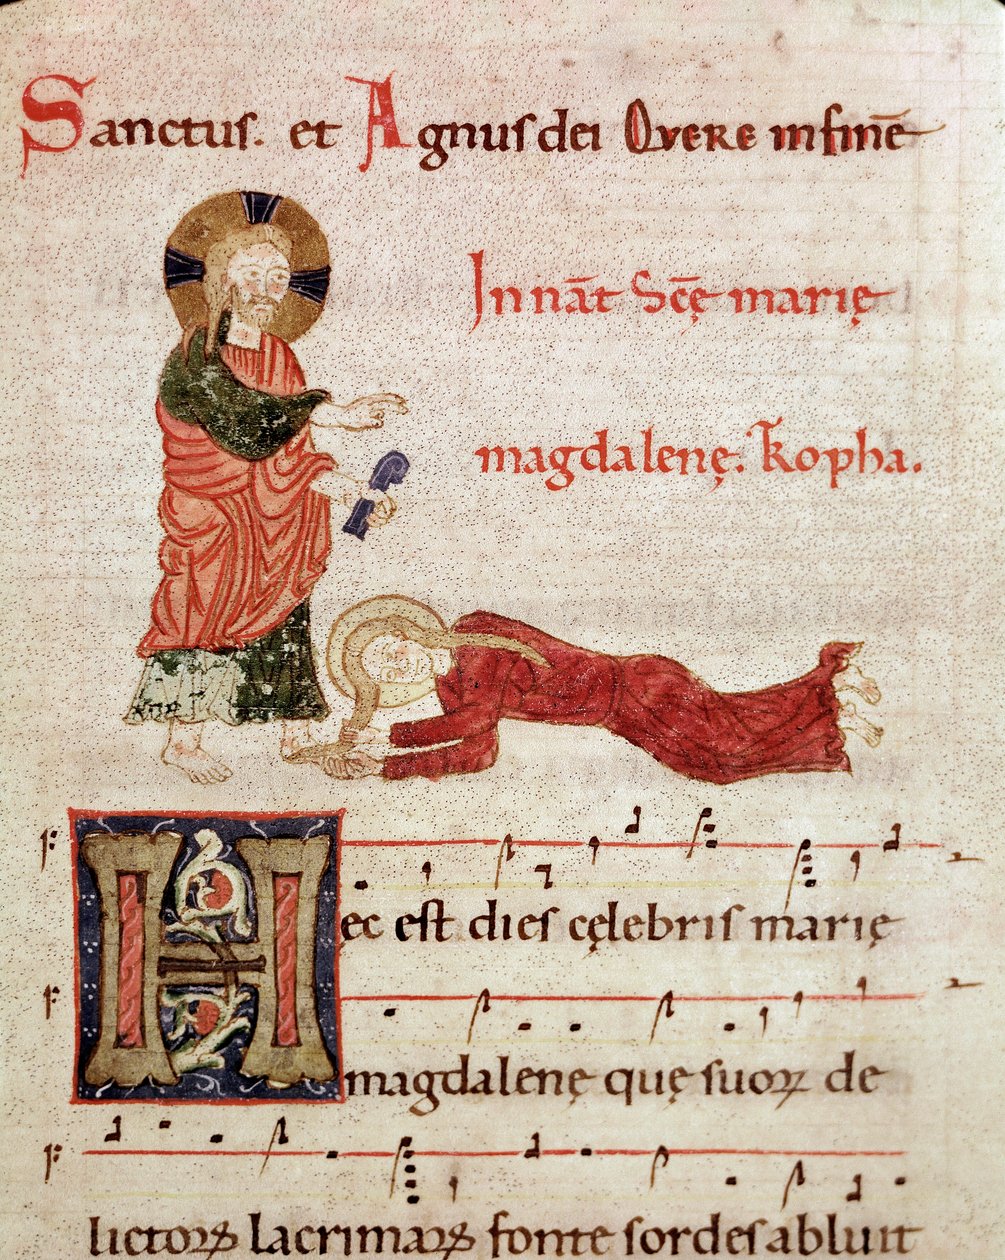 Sanctus. et Agnus dei Quere in finē
In nāt Scę̄ marię
magdalenę. k̄opha.
Hec est dies cęlebris marię
magdalenę quę suoꝝ de
lictoꝝ lacrimaꝝ fonte sordes abluit